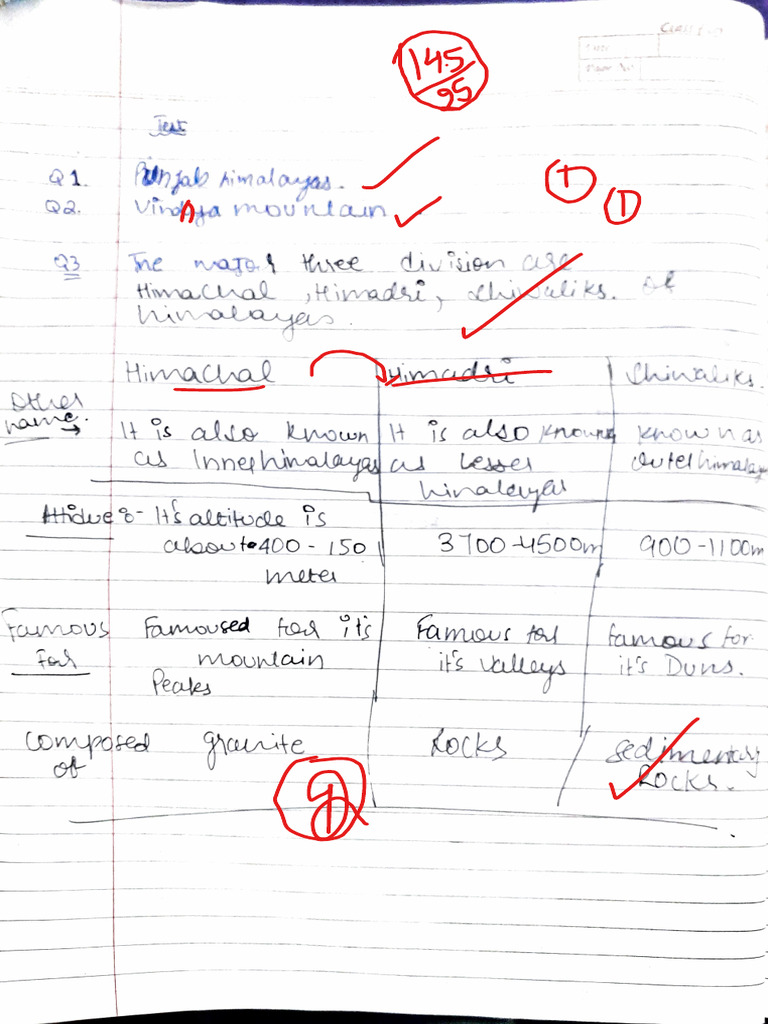 14.5
25
Test
Q1. Punjab himalayas.
Q2. Vindhya mountain
1 1
Q3 The major three division are
Himachal, Himadri, Shiwaliks. of
himalayas.
Himachal Himadri Shiwaliks.
Other name. → It is also known as Innerhimalayas It is also known as Lesser himalayas known as Outerhimalay
It's altitude is about 400 - 150 meter 3700-4500m 900-1100m
Famous for Famoused for it's mountain Peaks Famous for it's valleys famous for it's Duns.
composed of granite Rocks Sedimentary Rocks.